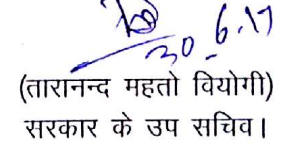 30.6.17
(तारानन्द महतो वियोगी)
सरकार के उप सचिव।